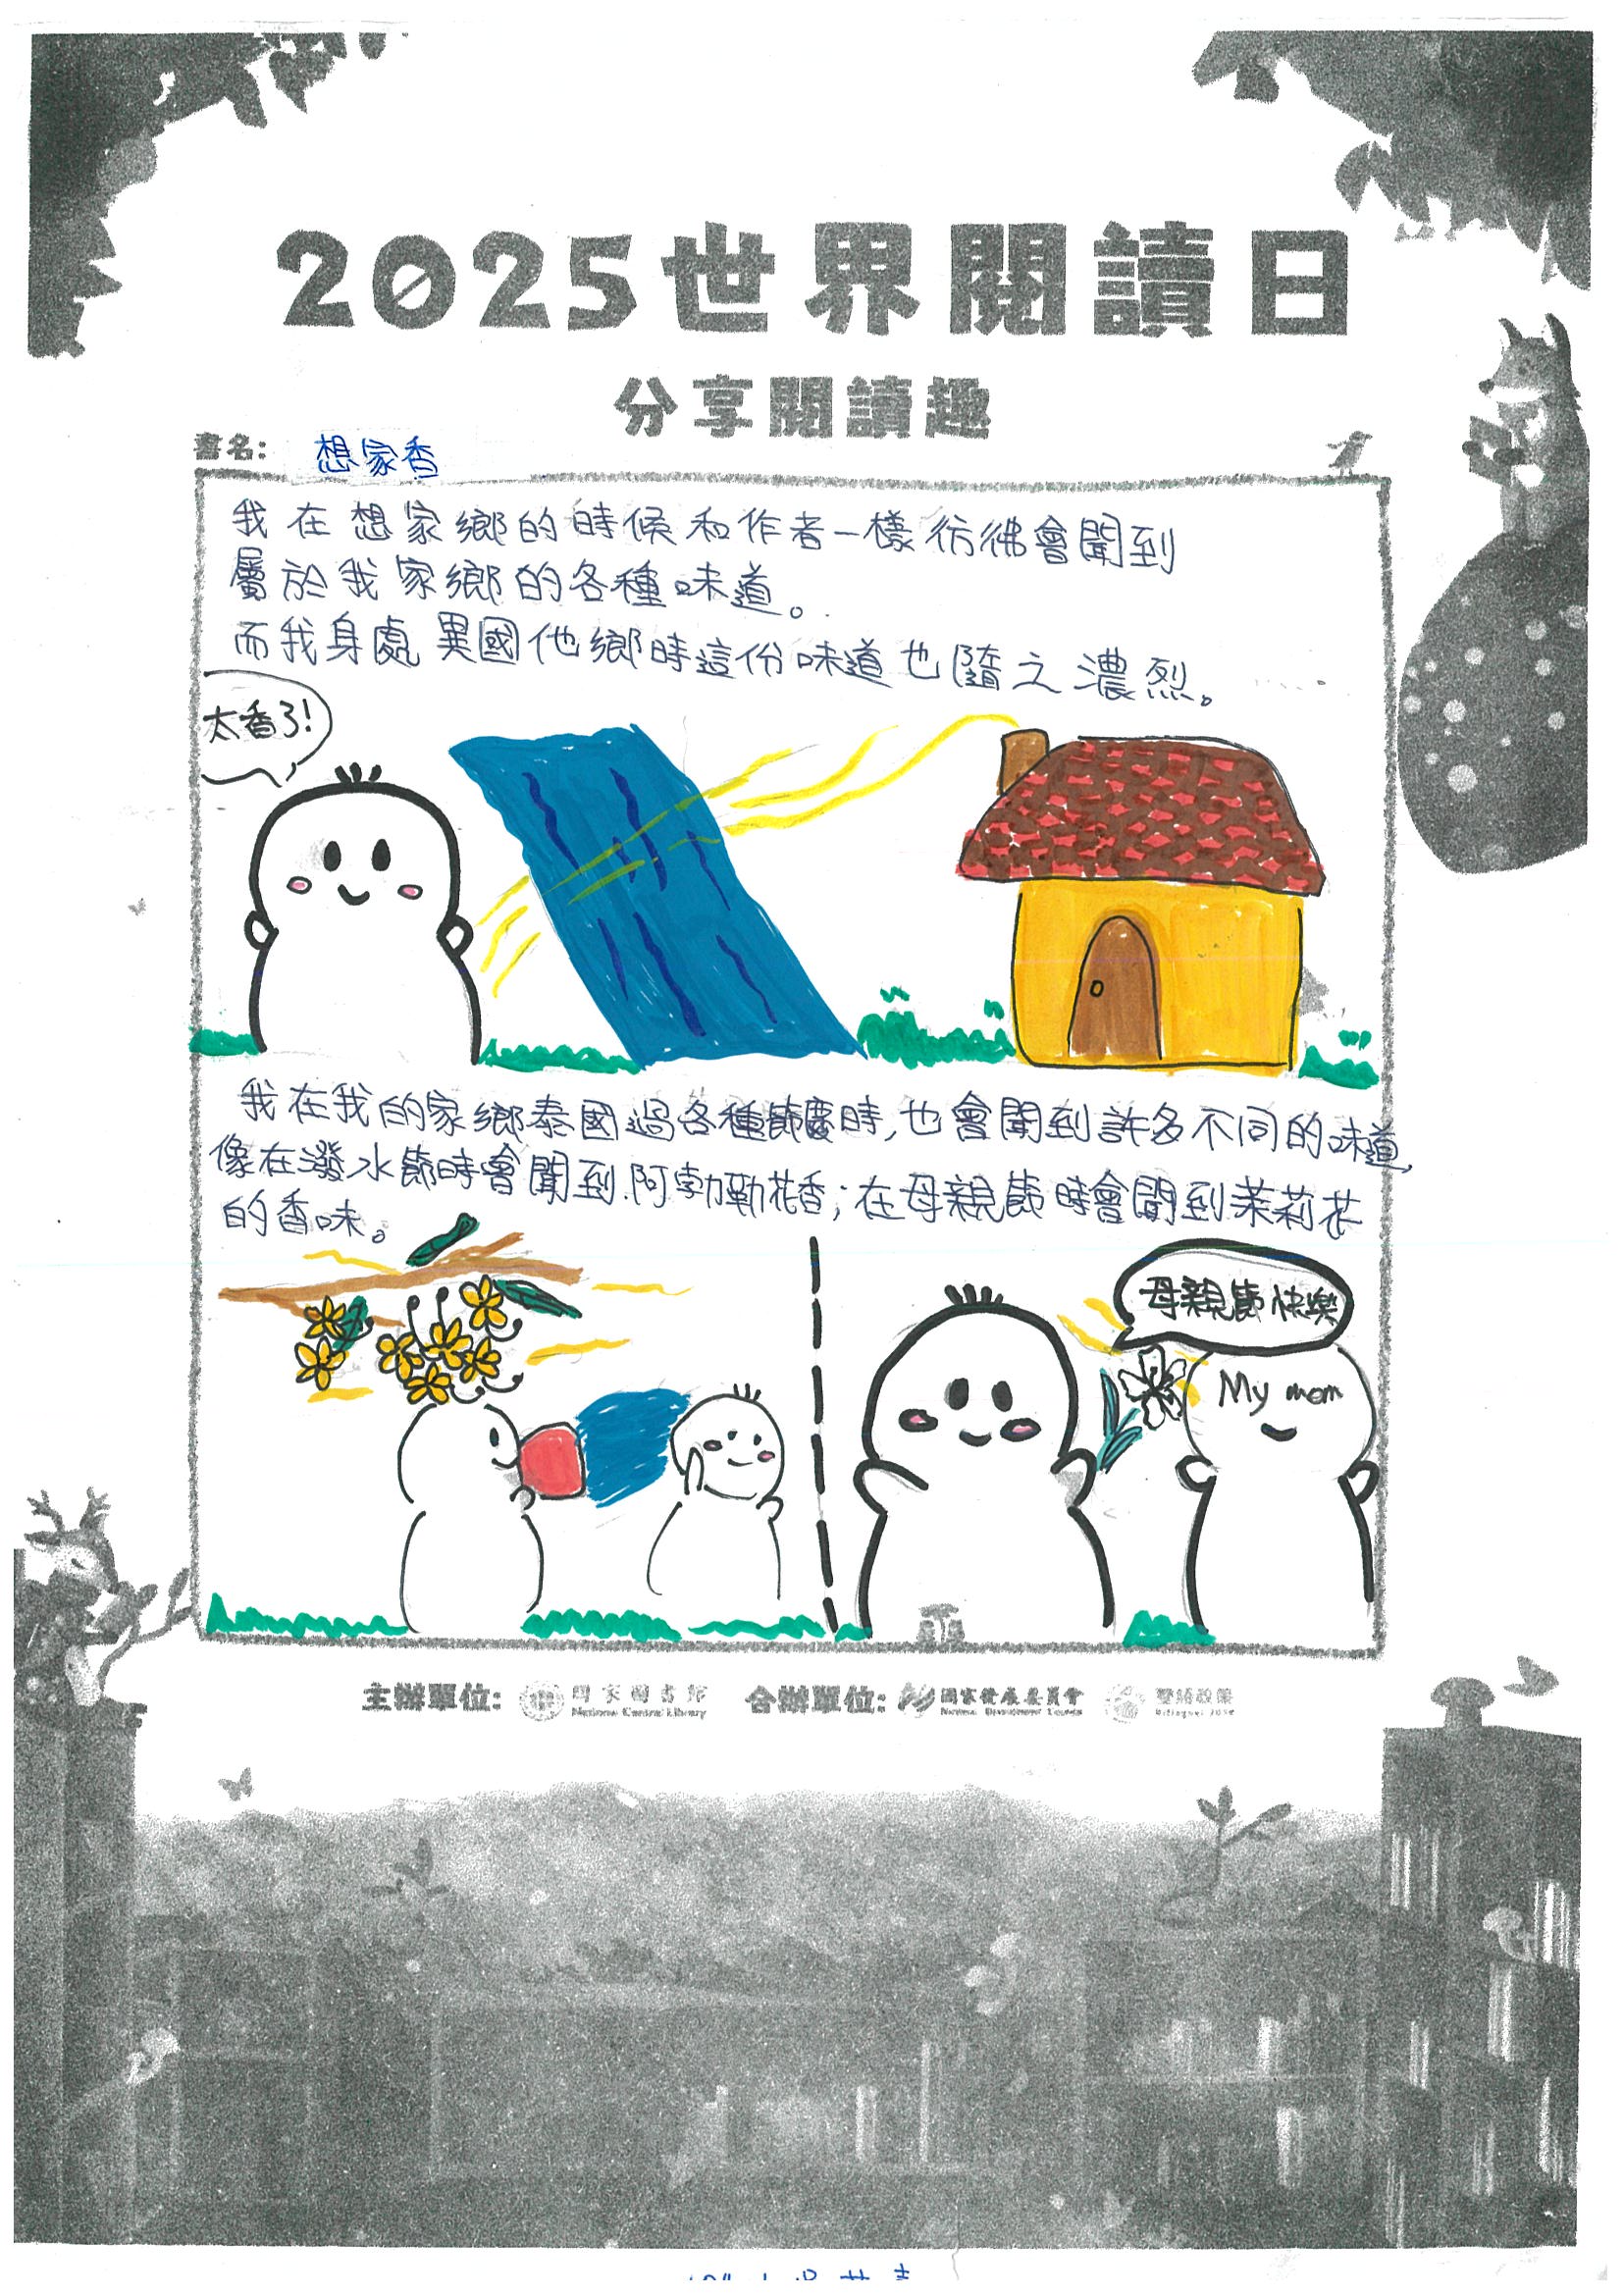 2025世界閱讀日
分享閱讀趣
書名: 想家香
我在想家鄉的時候和作者一樣彷彿會聞到
屬於我家鄉的各種味道。
而我身處異國他鄉時這份味道也隨之濃烈。
太香了!
我在我的家鄉泰國過各種節慶時,也會聞到許多不同的味道,
像在潑水節時會聞到阿勃勒花香;在母親節時會聞到茉莉花
的香味。
母親節快樂
My mom
主辦單位: 國家圖書館 合辦單位: 國家發展委員會 雙語政策
National Central Library National Development Council Bilingual 2030